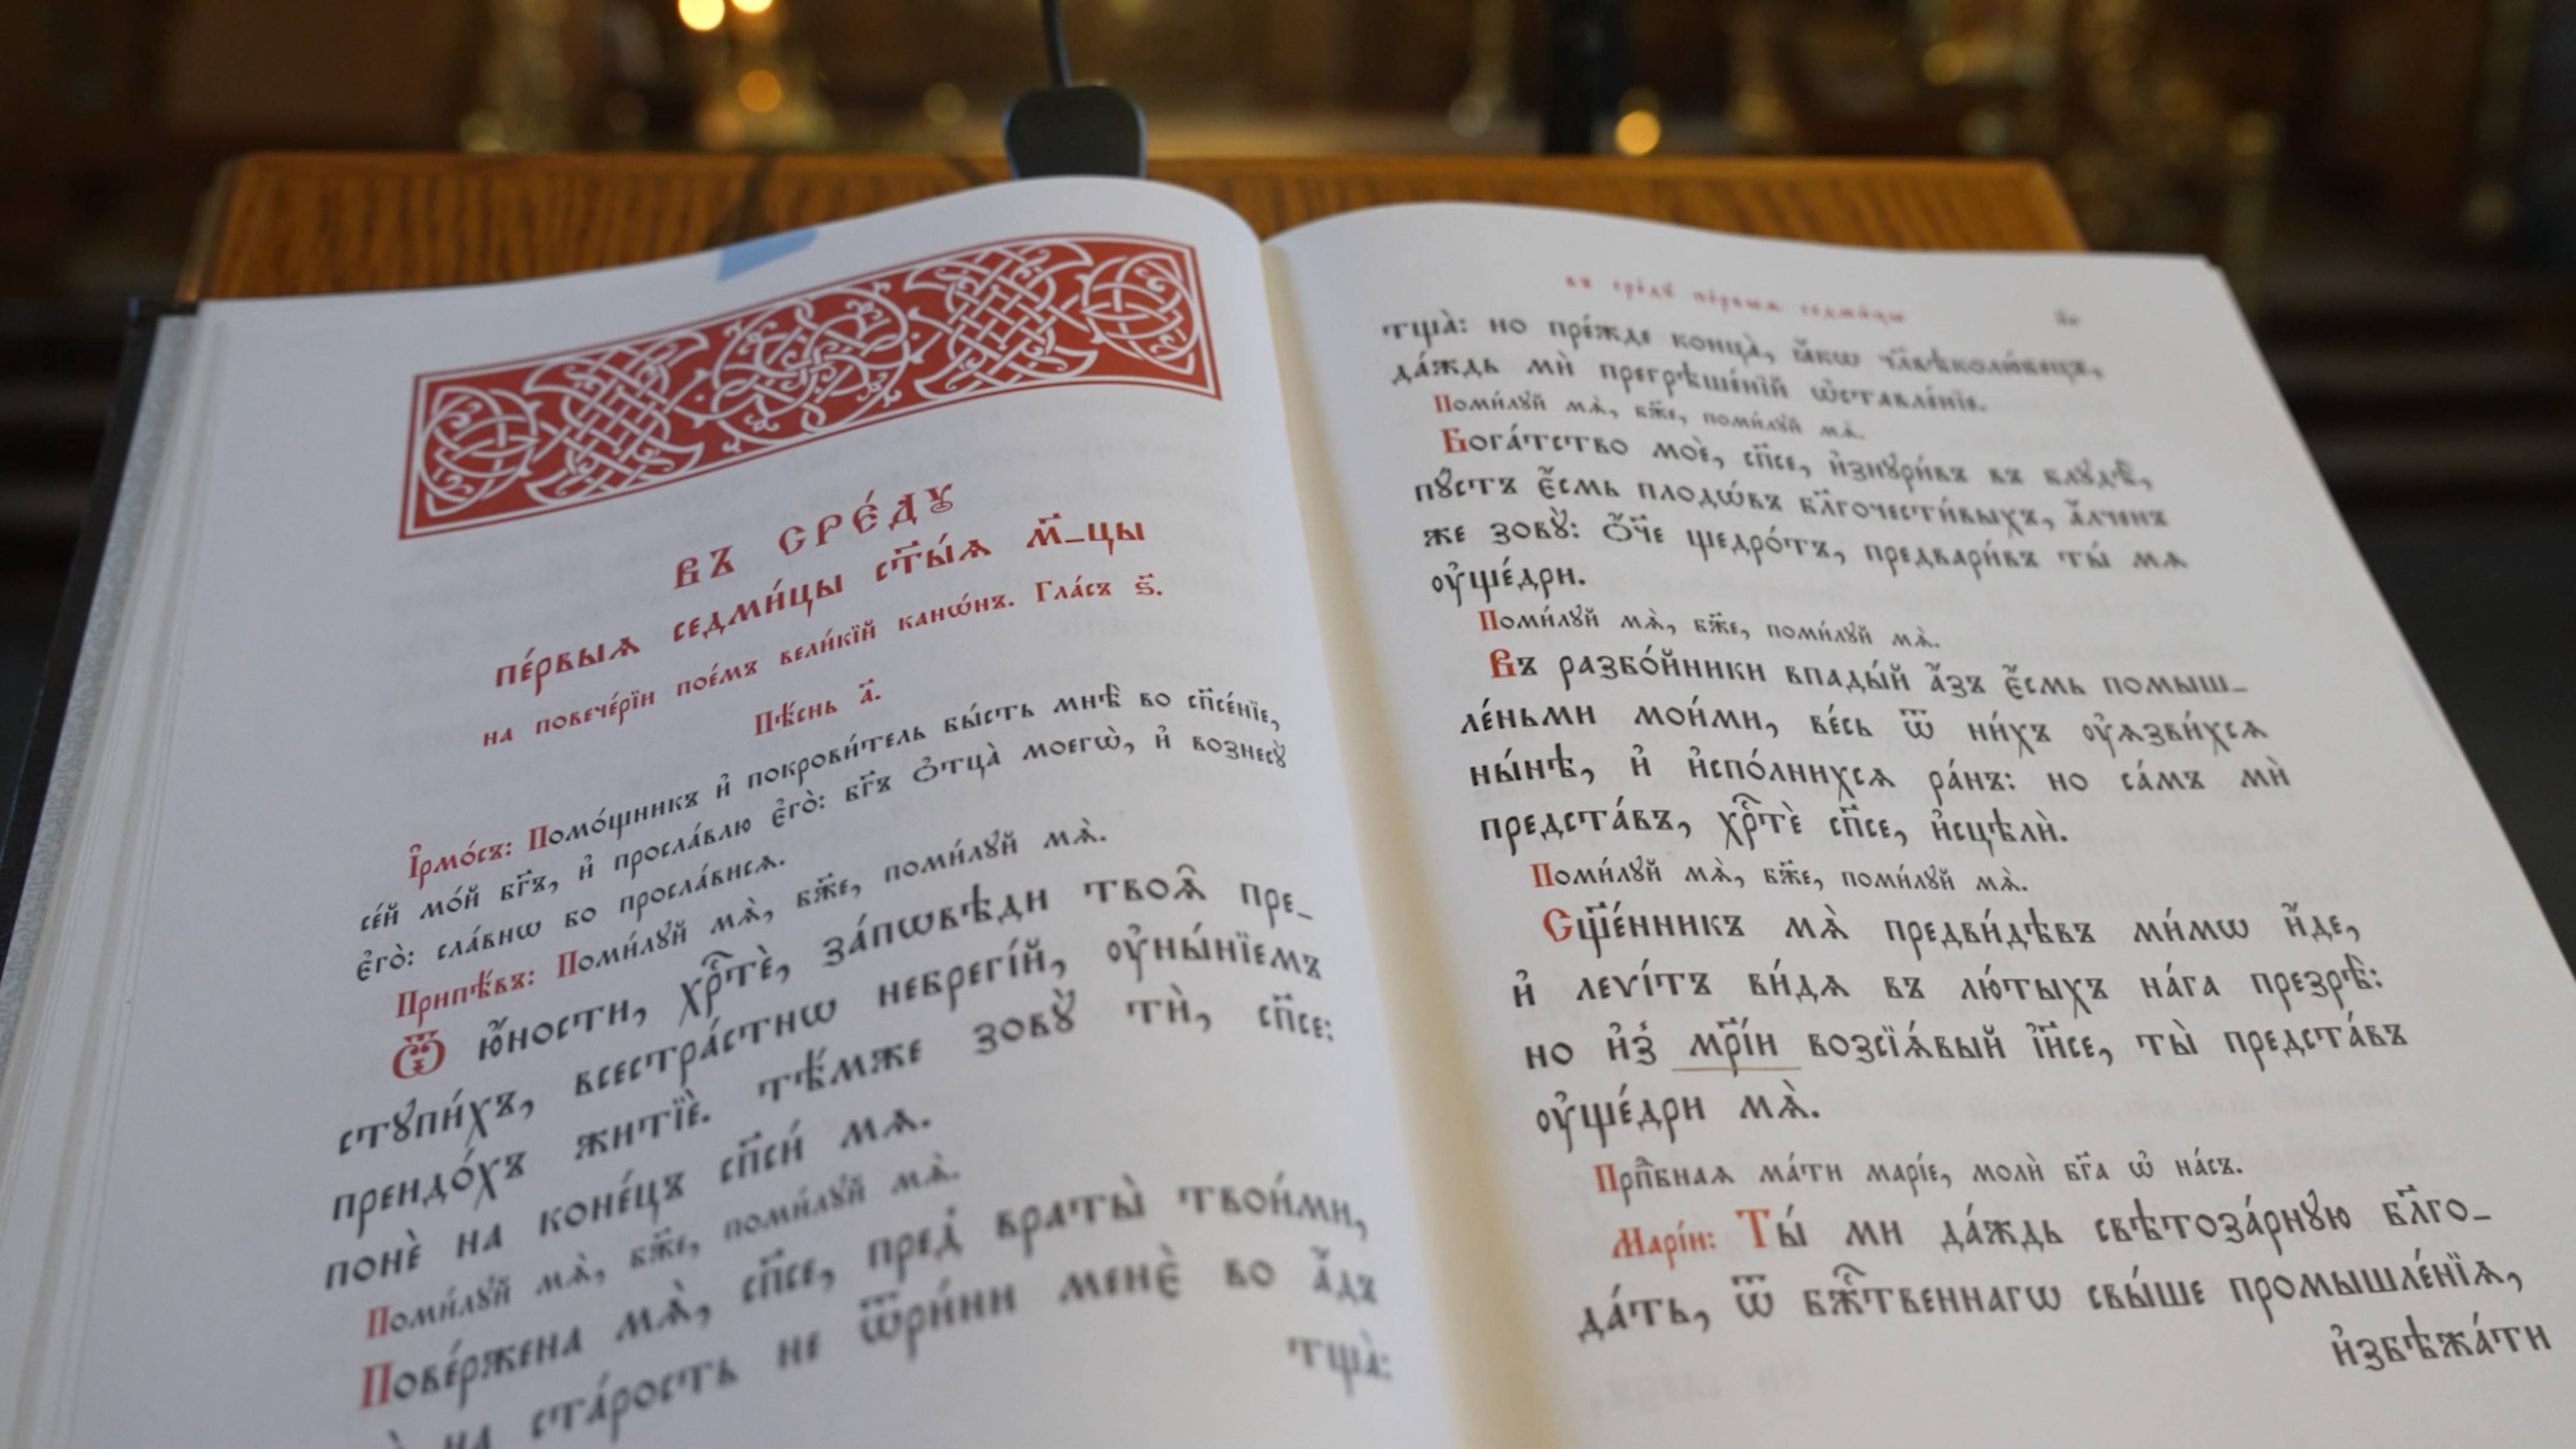 въ сре́дꙋ
пе́рвыѧ седми́цы ст҃ы́ѧ м҃-цы
на повече́рїи пое́мъ вели́кїй канѡ́нъ. Гла́съ ѕ҃.
Пѣ́снь а҃.
І҆рмо́съ: Помо́щникъ и҆ покрови́тель бы́сть мнѣ̀ во сп҃се́нїе,
се́й мо́й бг҃ъ, и҆ просла́влю є҆го̀: бг҃ъ ѻ҆тца̀ моегѡ̀, и҆ вознесꙋ̀
є҆го̀: сла́внѡ бо просла́висѧ.
Припѣ́въ: Поми́лꙋй мѧ̀, бж҃е, поми́лꙋй мѧ̀.
Ѿ ю҆́ности, хрⷭ҇тѐ, за́пѡвѣди твоѧ̑ пре_
стꙋпи́хъ, всестра́стнѡ небрегі́й, ᲂу҆ны́нїемъ
преидо́хъ житїѐ. тѣ́мже зовꙋ̀ тѝ, сп҃се:
понѐ на коне́цъ сп҃си́ мѧ.
Поми́лꙋй мѧ̀, бж҃е, поми́лꙋй мѧ̀.
Пове́ржена мѧ̀, сп҃се, пред̾ враты̀ твои́ми,
на ста́рость не ѿри́ни менѐ во а҆́дъ
тща̀:
въ сре́дꙋ пе́рвыѧ седми́цы
тща̀: но пре́жде конца̀, ꙗ҆́кѡ чл҃вѣколю́бецъ,
да́ждь мѝ прегрѣше́нїй ѡ҆ставле́нїе.
Поми́лꙋй мѧ̀, бж҃е, поми́лꙋй мѧ̀.
Бога́тство моѐ, сп҃се, и҆знꙋри́въ въ блꙋдѣ̀,
пꙋ́стъ є҆́смь плодѡ́въ бл҃гочести́выхъ, а҆́лченъ
же зовꙋ̀: ѻ҆́ч҃е щедро́тъ, предвари́въ ты́ мѧ
ᲂу҆ще́дри.
Поми́лꙋй мѧ̀, бж҃е, поми́лꙋй мѧ̀.
Въ разбо́йники впады́й а҆́зъ є҆́смь помыш_
ле́ньми мои́ми, ве́сь ѿ ни́хъ ᲂу҆ѧзви́хсѧ
ны́нѣ, и҆ и҆спо́лнихсѧ ра́нъ: но са́мъ мѝ
предста́въ, хрⷭ҇тѐ сп҃се, и҆сцѣлѝ.
Поми́лꙋй мѧ̀, бж҃е, поми́лꙋй мѧ̀.
Сщ҃е́нникъ мѧ̀ предви́дѣвъ ми́мѡ и҆́де,
и҆ леѵі́тъ ви́дѧ въ лю́тыхъ на́га презрѣ̀:
но и҆з̾ мр҃і́и возсїѧ́вый і҆и҃се, ты̀ предста́въ
ᲂу҆ще́дри мѧ̀.
Прпⷣбнаѧ ма́ти марі́е, молѝ бг҃а ѡ҆ на́съ.
Марі́и: Ты́ ми да́ждь свѣтоза́рнꙋю бл҃го_
да́ть, ѿ бжⷭ҇твеннагѡ свы́ше промышле́нїѧ,
и҆збѣжа́ти